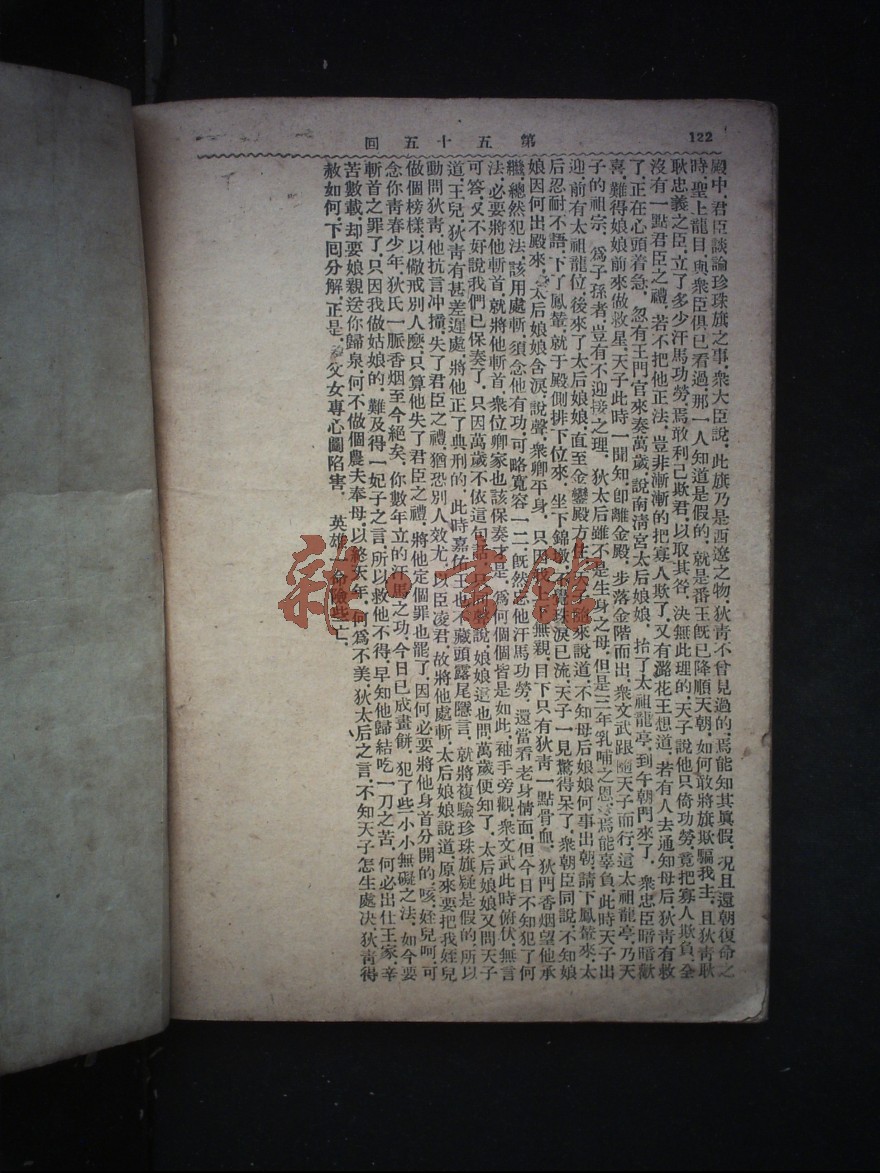 122
第五十五回
殿中．君臣談論珍珠旗之事．衆大臣說．此旗乃是西遼之物．狄靑不曾見過的．焉能知其眞假．况且還朝復命之
時．聖上龍目．與衆臣俱已看過．那一人知道是假的．就是番王旣已降順天朝．如何敢將旗欺騙我主．且狄靑耿
耿忠義之臣．立了多少汗馬功勞．焉敢利己欺君．以取其咎．決無此理的．天子說他只倚功勞．竟把寡人欺負．全
沒有一點君臣之禮．若不把他正法．豈非漸漸的把寡人欺了．又有潞花王想道．若有人去通知母后．狄靑有救
了．正在心頭着急．忽有王門官來奏萬歲．說南淸宮太后娘娘．抬了太祖龍亭．到午朝門來了．衆忠臣暗暗歡
喜．難得娘娘前來做救星．天子此時一聞知．卽離金殿．步落金階而出．衆文武跟隨天子而行．這太祖龍亭．乃天
子的祖宗．爲子孫者．豈有不迎接之理．狄太后雖不是生身之母．但是三年乳哺之恩．焉能辜負．此時天子出
迎．前有太祖龍位．後來了太后娘娘．直至金鑾殿方住．天子說道．不知母后娘娘何事出朝．請下鳳輦來．太
后忍耐不語．下了鳳輦．就于殿側排下位來．坐下錦墩．不覺珠淚已流．天子一見驚得呆了．衆朝臣同說．不知娘
娘因何出殿來．太后娘娘含淚．說聲．衆卿平身．只因我上下無親．目下只有狄靑一點骨血．狄門香烟望他承
繼．總然犯法．該用處斬．須念他有功．可略寬容一二．旣然忘他汗馬功勞．還當看老身情面．但今日不知犯了何
法．必要將他斬首．就將他斬首．衆位卿家也該保奏才是．爲何個個皆是如此．袖手旁觀．衆文武此時俯伏．無言
可答．又不好說我們已保奏了．只因萬歲不依這句話．只同聲說．娘娘這也問萬歲便知了．太后娘娘又問天子
道．王兒．狄靑有甚差遲處．將他正了典刑的．此時嘉佑王也不藏頭露尾隱言．就將複驗珍珠旗疑是假的．所以
動問狄靑．他抗言沖撞．失了君臣之禮．猶恐別人效尤．以臣凌君．故將他處斬．太后娘娘說道．原來要把我姪兒
做個榜樣．以儆戒別人麽．只算他失了君臣之禮．將他定個罪也罷了．因何必要將他身首分開的．咳．姪兒呵．可
念你靑春少年．狄氏一脈香烟至今絕矣．你數年立的汗馬之功．今日已成畫餅．犯了些小小無礙之法．如今要
斬首之罪了．只因我做姑娘的．難及得一妃子之言．所以救他不得．早知他歸結吃一刀之苦．何必出仕王家．辛
苦數載．却要娘親送你歸泉．何不做個農夫奉母．以終天年．何爲不美．狄太后之言．不知天子怎生處决．狄靑得
赦如何．下囘分解．正是．父女專心圖陷害．英雄一命險些亡．
雜·書館